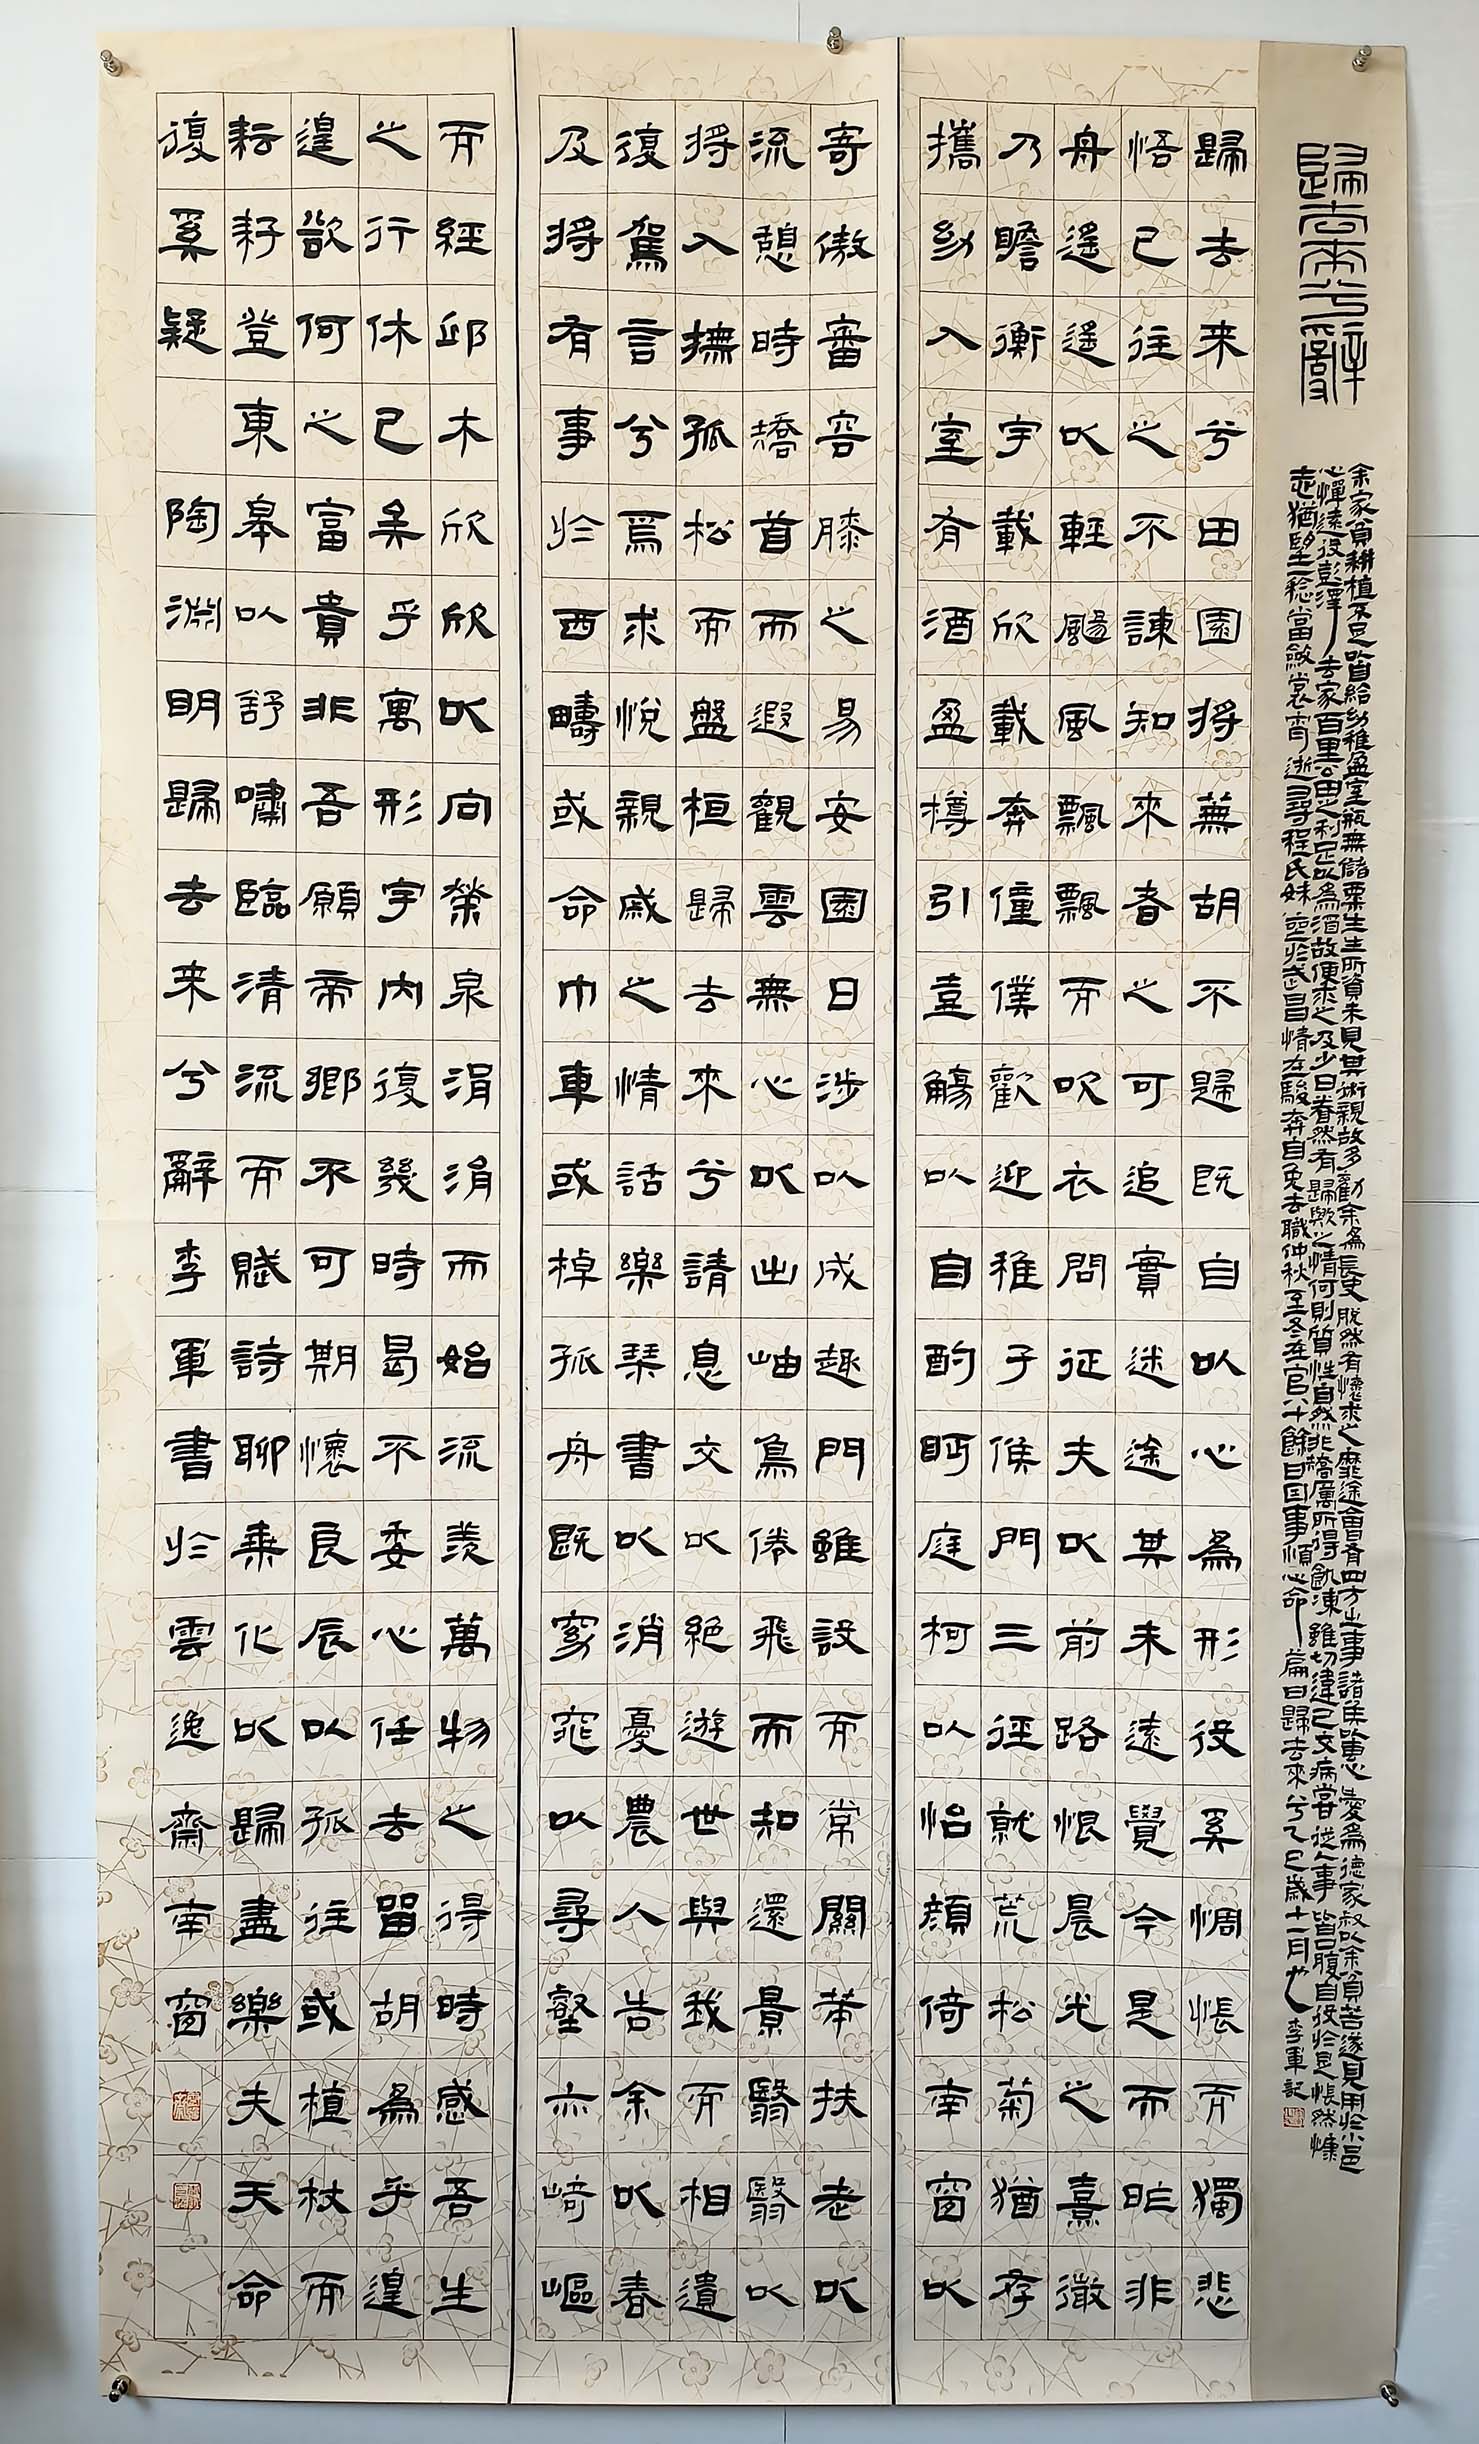 歸去來兮辭
余家貧耕植不足以自給幼稚盈室瓶無儲粟生生所資未見其術親故多勸余為長吏脫然有懷求之靡途會有四方之事諸侯以惠愛為德家叔以余貧苦遂見用於小邑
心憚遠役彭澤去家百里公田之利足以為酒故便求之及少日眷然有歸歟之情何則質性自然非矯厲所得飢凍雖切違己交病嘗從人事皆口腹自役於是悵然慷
志猶望一稔當斂裳宵逝尋程氏妹喪於武昌情在駿奔自免去職仲秋至冬在官八十餘日因事順心命篇曰歸去來兮乙巳歲十一月也 李軍記
歸去来兮田園將蕪胡不歸既自以心為形役奚惆悵而獨悲
悟已往之不諫知來者之可追實迷途其未遠覺今是而昨非
舟遙遙以輕颺風飄飄而吹衣問征夫以前路恨晨光之熹微
乃瞻衡宇載欣載奔僮僕歡迎稚子候門三徑就荒松菊猶存
攜幼入室有酒盈樽引壺觴以自酌眄庭柯以怡顏倚南窗以
寄傲審容膝之易安園日涉以成趣門雖設而常關策扶老以
流憩時矯首而遐觀雲無心以出岫鳥倦飛而知還景翳翳以
將入撫孤松而盤桓歸去來兮請息交以絕遊世與我而相遺
復駕言兮焉求悅親戚之情話樂琴書以消憂農人告余以春
及將有事於西疇或命巾車或棹孤舟既窈窕以尋壑亦崎嶇
而經邱木欣欣以向榮泉涓涓而始流羨萬物之得時感吾生
之行休已矣乎寓形宇內復幾時曷不委心任去留胡為乎遑
遑欲何之富貴非吾願帝鄉不可期懷良辰以孤往或植杖而
耘耔登東皋以舒嘯臨清流而賦詩聊乘化以歸盡樂夫天命
復奚疑 陶淵明歸去来兮辭李軍書於雲逸齋南窗